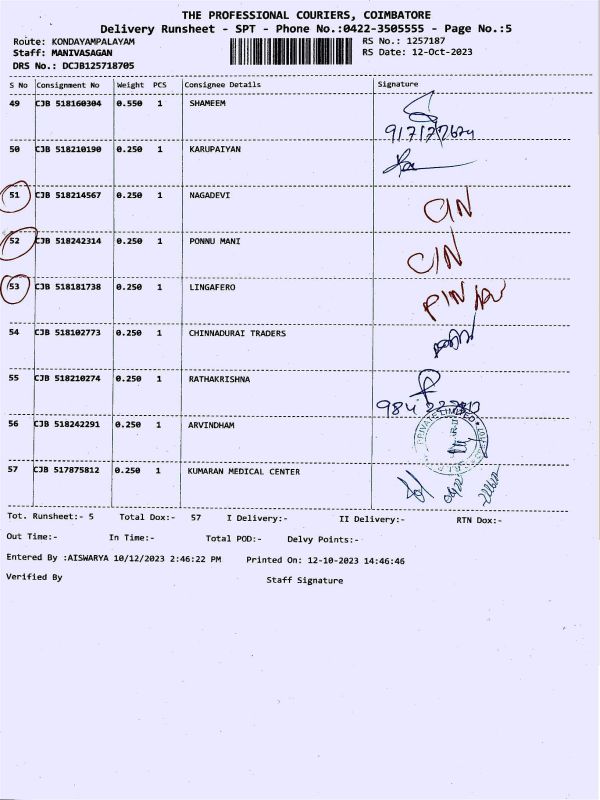 THE PROFESSIONAL COURIERS, COIMBATORE
Delivery Runsheet - SPT - Phone No.:0422-3505555 - Page No.:5
Route: KONDAYAMPALAYAM RS No.: 1257187
Staff: MANIVASAGAN RS Date: 12-Oct-2023
DRS No.: DCJB125718705
S No Consignment No Weight PCS Consignee Details Signature
49 CJB 518160304 0.550 1 SHAMEEM
50 CJB 518210190 0.250 1 KARUPAIYAN
51 CJB 518214567 0.250 1 NAGADEVI CIN
52 CJB 518242314 0.250 1 PONNU MANI CIN
53 CJB 518181738 0.250 1 LINGAFERO PIN
54 CJB 518102773 0.250 1 CHINNADURAI TRADERS
55 CJB 518210274 0.250 1 RATHAKRISHNA
56 CJB 518242291 0.250 1 ARVINDHAM PRIVATE LIMITED
57 CJB 517875812 0.250 1 KUMARAN MEDICAL CENTER
Tot. Runsheet:- 5 Total Dox:- 57 I Delivery:- II Delivery:- RTN Dox:-
Out Time:- In Time:- Total POD:- Delvy Points:-
Entered By :AISWARYA 10/12/2023 2:46:22 PM Printed On: 12-10-2023 14:46:46
Verified By Staff Signature